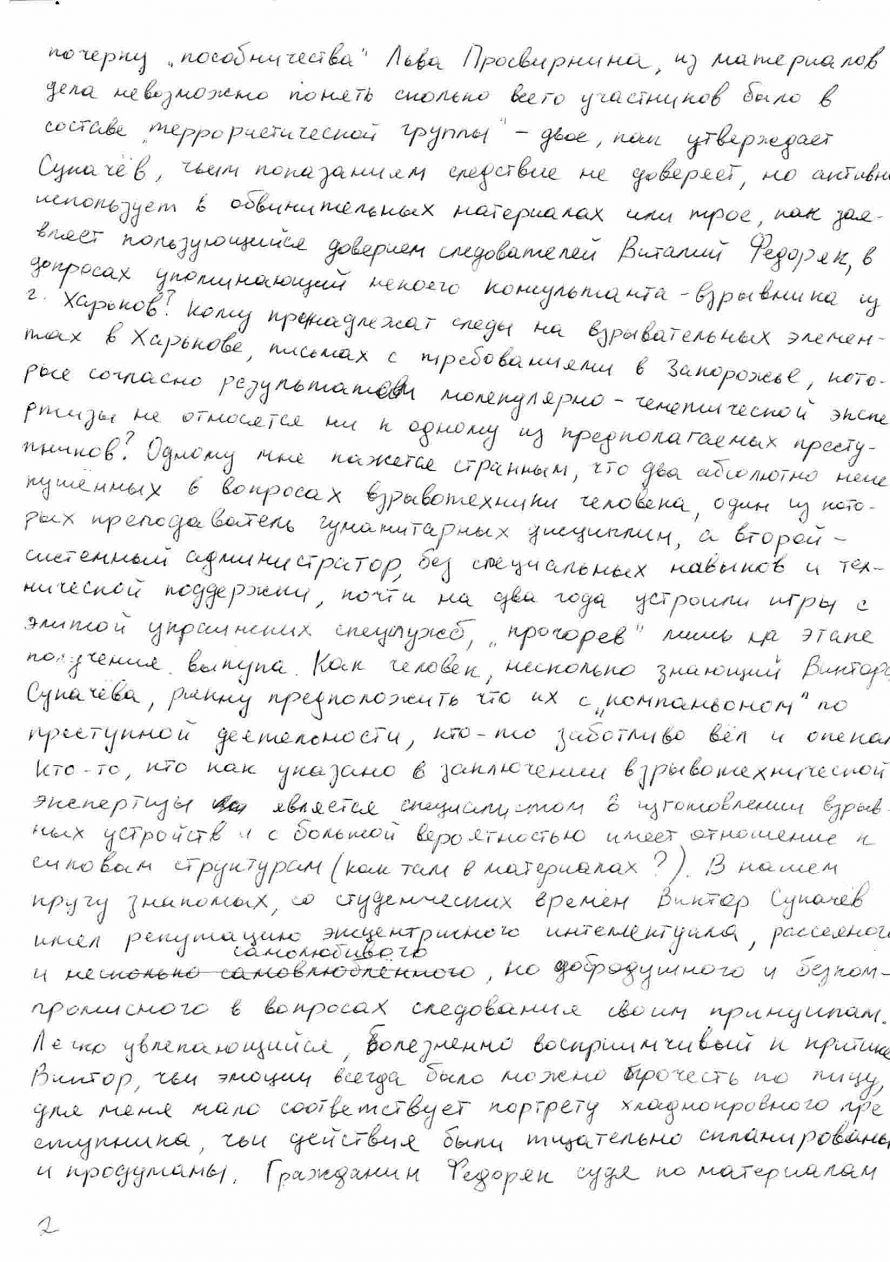 почерку „пособничества" Льва Просвирнина, из материалов
дела невозможно понять сколько всего участников было в
составе „террористической группы" – двое, как утверждает
Сукачёв, чьим показаниям следствие не доверяет, но активно
использует в обвинительных материалах или трое, как зая-
вляет пользующийся доверием следователей Виталий Федоряк, в
допросах упоминающий некоего консультанта-взрывника из
г. Харьков? Кому пренадлежат следы на взрывательных элемен-
тах в Харькове, письмах с требованиями в Запорожье, кото-
рые согласно результатам молекулярно-генетической экспе
ртизы не относятся ни к одному из предполагаемых престу-
пников? Одному мне кажется странным, что два абсолютно неис
кушённых в вопросах взрывотехники человека, один из кото-
рых преподаватель гуманитарных дисциплин, а второй –
системный администратор, без специальных навыков и тех-
нической поддержки, почти на два года устроили игры с
элитой украинских спецслужб, „прогорев" лишь на этапе
получения выкупа. Как человек, несколько знающий Виктора
Сукачёва, рискну предположить что их с „компаньоном" по
преступной деятельности, кто-то заботливо вёл и опекал
Кто-то, кто как указано в заключении взрывотехнической
экспертизы является специалистом в изготовлении взрыв-
ных устройств и с большой вероятностью имеет отношение к
силовым структурам (как там в материалах?). В нашем
кругу знакомых, со студенческих времён Виктор Сукачёв
имел репутацию эксцентричного интеллектуала, рассеяного
самолюбивого
и несколько самовлюблённого, но добродушного и безком-
промисного в вопросах следования своим принципам.
Легко увлекающийся, болезненно восприимчивый к критике
Виктор, чьи эмоции всегда было можно прочесть по лицу,
для меня мало соответствует портрету хладнокровного пре
ступника, чьи действия были тщательно спланированы
и продуманы. Гражданин Федоряк судя по материалам
2